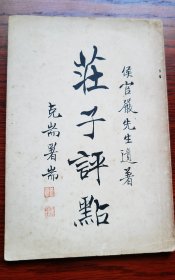 侯官嚴先生遺著
莊子評點
克耑署耑